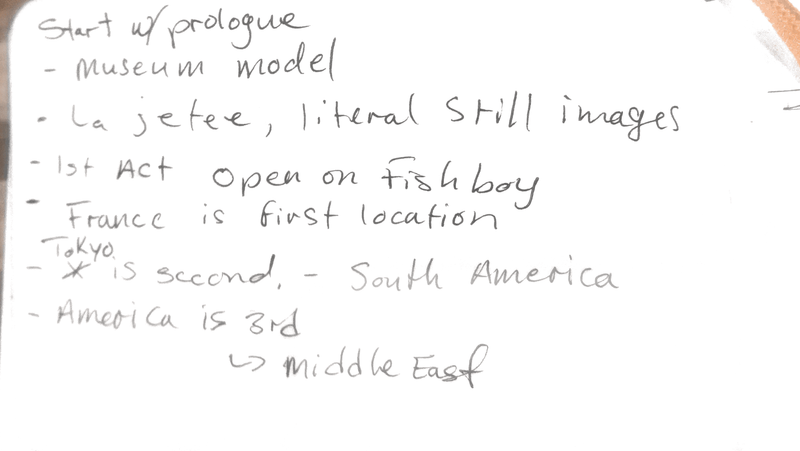 Start w/ prologue
- Museum model
- La jetee, literal still images
- 1st Act Open on Fishboy
- France is first location
Tokyo
- * is second. - South America
- America is 3rd
↳ Middle East